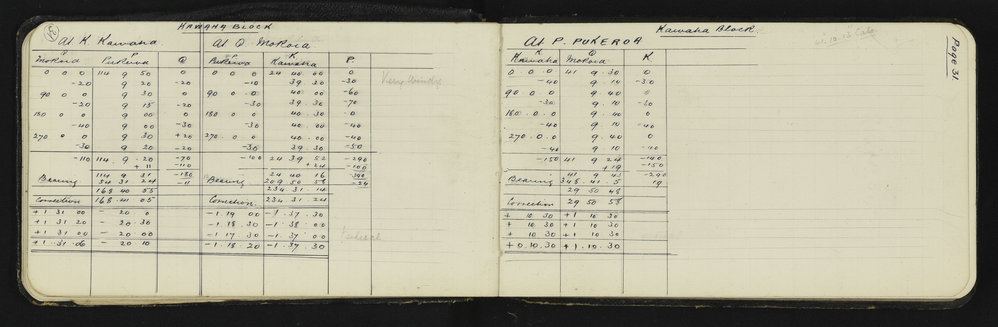 31
KAWAHA BLOCK
At K. Kawaha. At Q. Mokoia
Q P Q P K P
Mokoia Pukeroa Pukeroa Kawaha
0 0 0 114 9 50 0 0 0 0 24 40 00 0
-20 9 20 -20 -10 39 30 -30 Very Windy
90 0 0 9 30 0 90 0 0 40 00 -60
-20 9 15 -20 -30 39 30 -70
180 0 0 9 00 0 180 0 0 40 30 0
-40 9 00 -30 -30 40 00 -40
270 0 0 9 30 +20 270 0 0 40 00 -40
-30 9 20 -20 -30 39 30 -50
-110 114 9 20 -70 -100 24 39 52 -290
+11 -110 +24 -100
114 9 31 -180 24 40 16 -390
Bearing 54 31 24 -11 Bearing 209 50 58 -24
168 40 55 234 31 14
Correction 168 41 05 Correction 234 31 24
+1 31 00 - 20 0 -1 19 00 -1 37 30
+1 31 20 - 20 30 -1 18 30 -1 38 00
+1 31 00 - 20 00 -1 17 30 -1 37 00
+1 31 06 - 20 10 -1 18 20 -1 37 30
Kawaha Block
At P. PUKEROA
Page 31
K Q
Kawaha Mokoia K
0 0 0 41 9 30 0
-40 9 10 -30
90 0 0 9 40 0
-30 9 10 -30
180 0 0 9 40 0
-40 9 10 -40
270 0 0 9 40 0
-40 9 10 -40
-150 41 9 24 -140
+19 -150
41 9 43 -290
Bearing 348 41 5 19
29 50 48
Correction 29 50 58
+ 10 30 +1 10 30
+ 10 30 +1 10 30
+ 10 30 +1 10 30
+0 10 30 +1 10 30